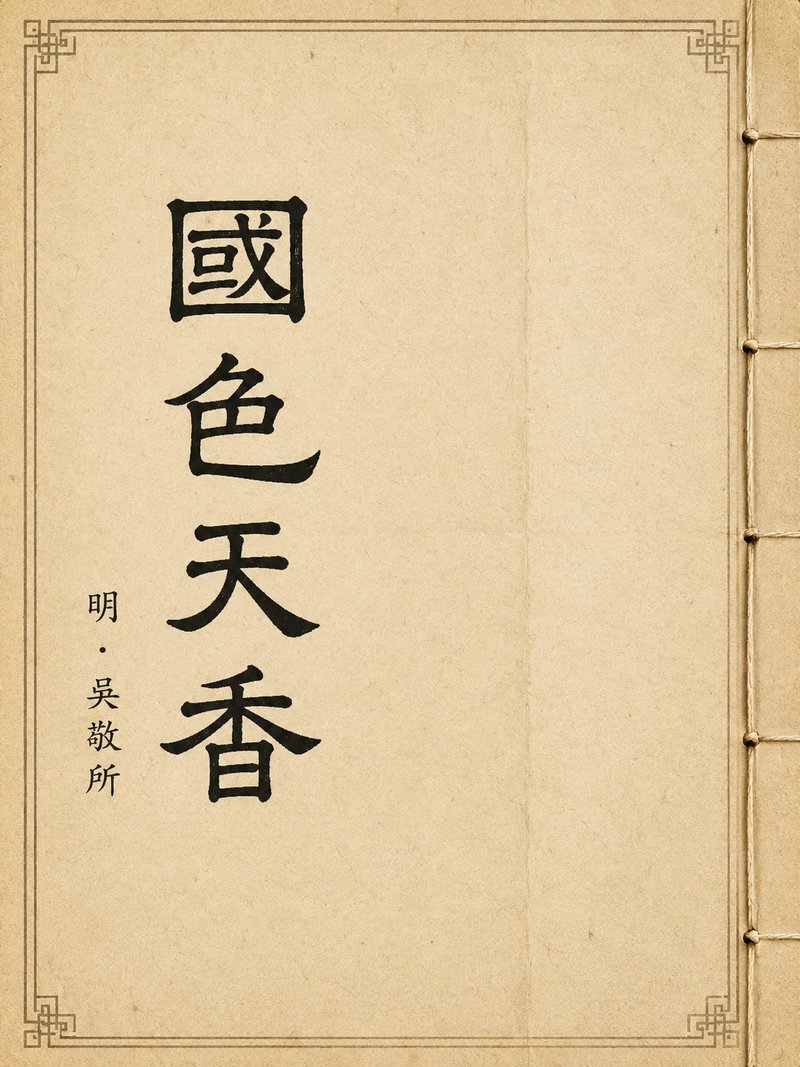 國色天香
明·吳敬所